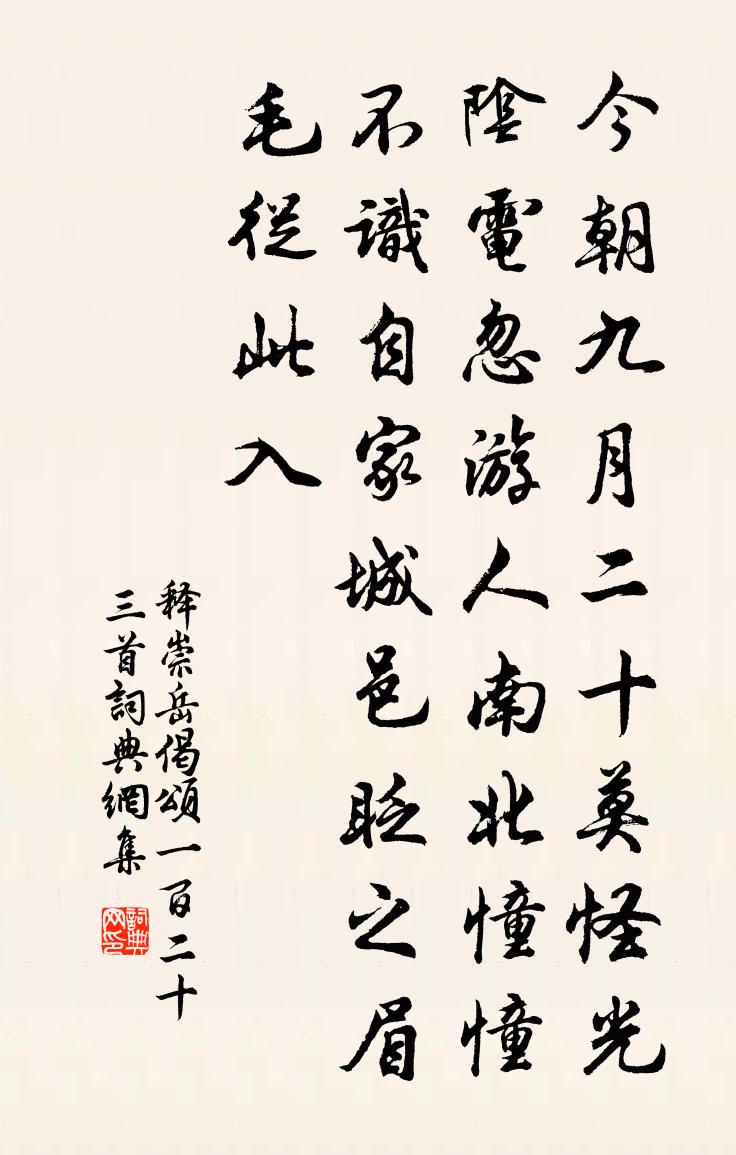 今朝九月二十莫怪光
陰電忽游人南北憧憧
不識自家城邑眨之眉
毛從此入
释崇岳偈頌一百二十
三首詞典網集
詞典网印